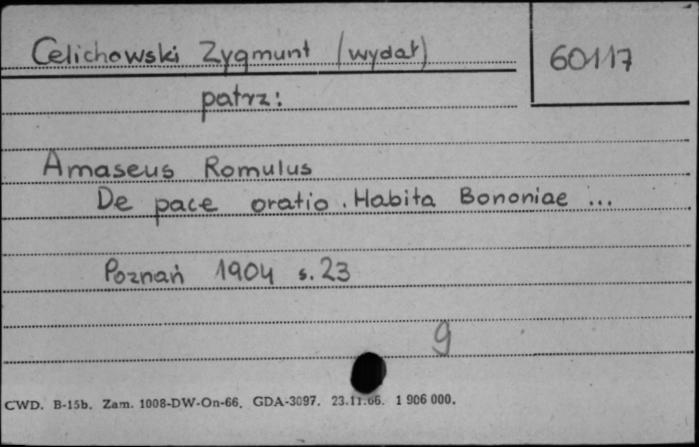 Celichowski Zygmunt (wydał)
60117
patrz:
Amaseus Romulus
De pace oratio. Habita Bononiae ...
Poznań 1904 s. 23
9
CWD. B-15b. Zam. 1008-DW-On-66. GDA-3097. 23.11.66. 1 906 000.